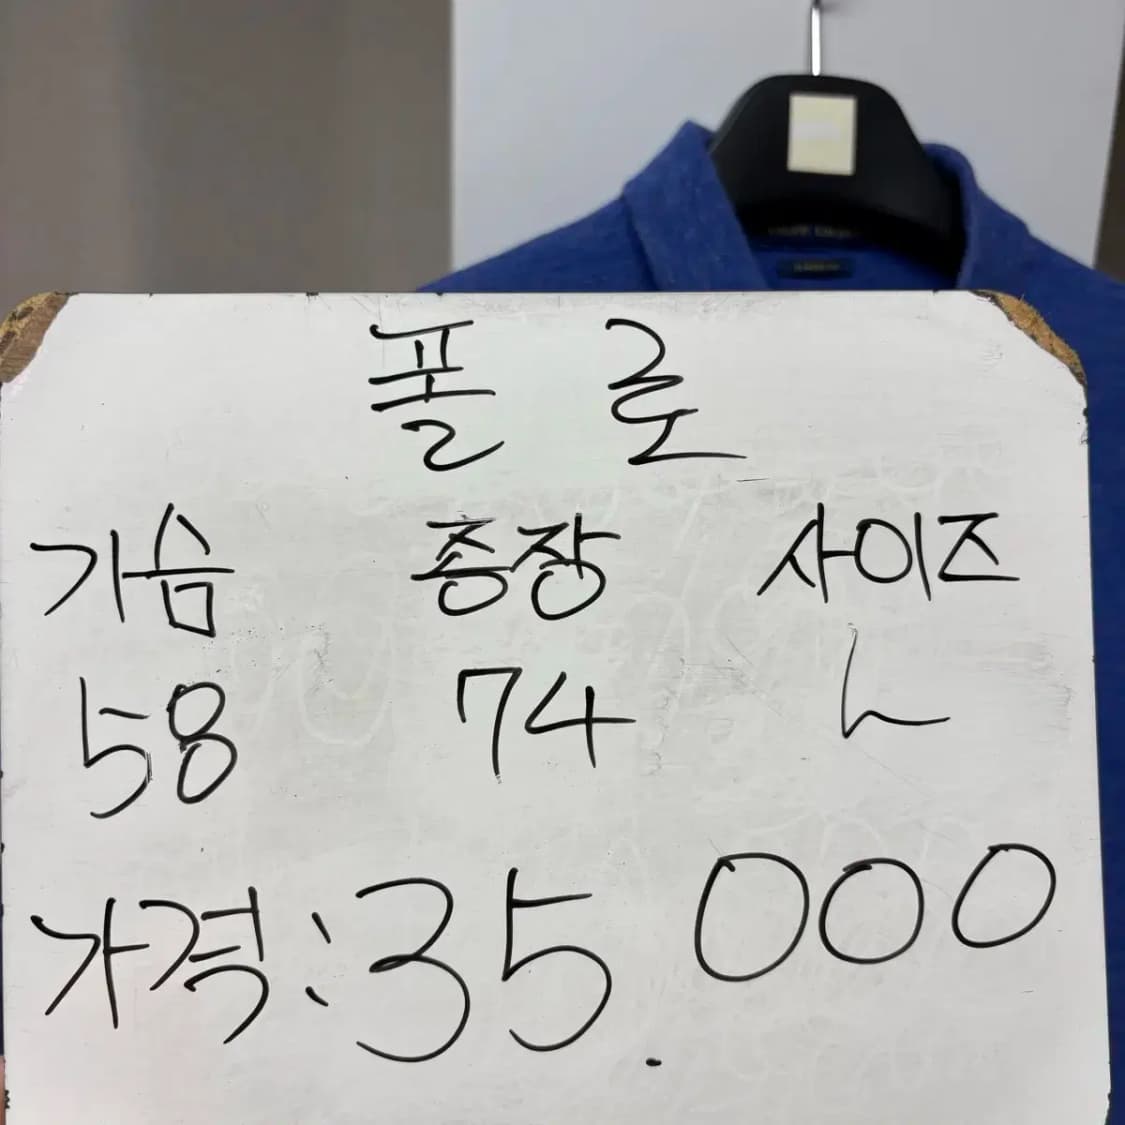 폴로
가슴 종장 사이즈
58 74 L
가격: 35.000